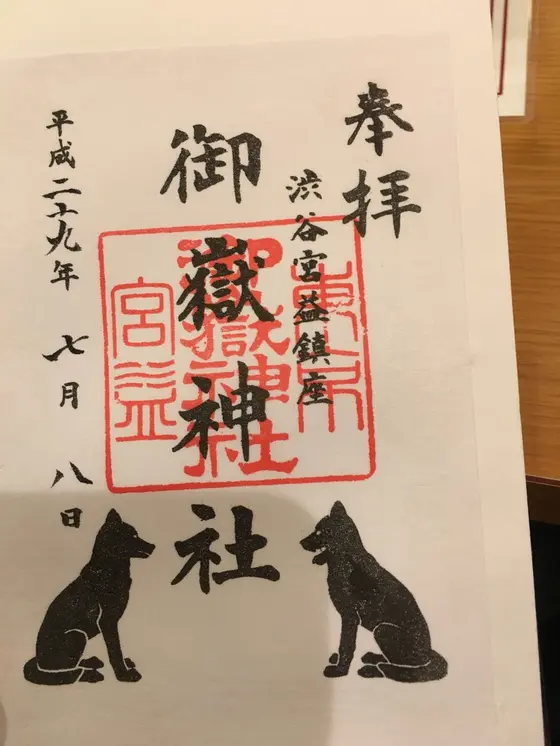 奉拝
渋谷宮益鎮座
御嶽神社
平成二十九年 七月 八日
東京
御嶽神社
宮益